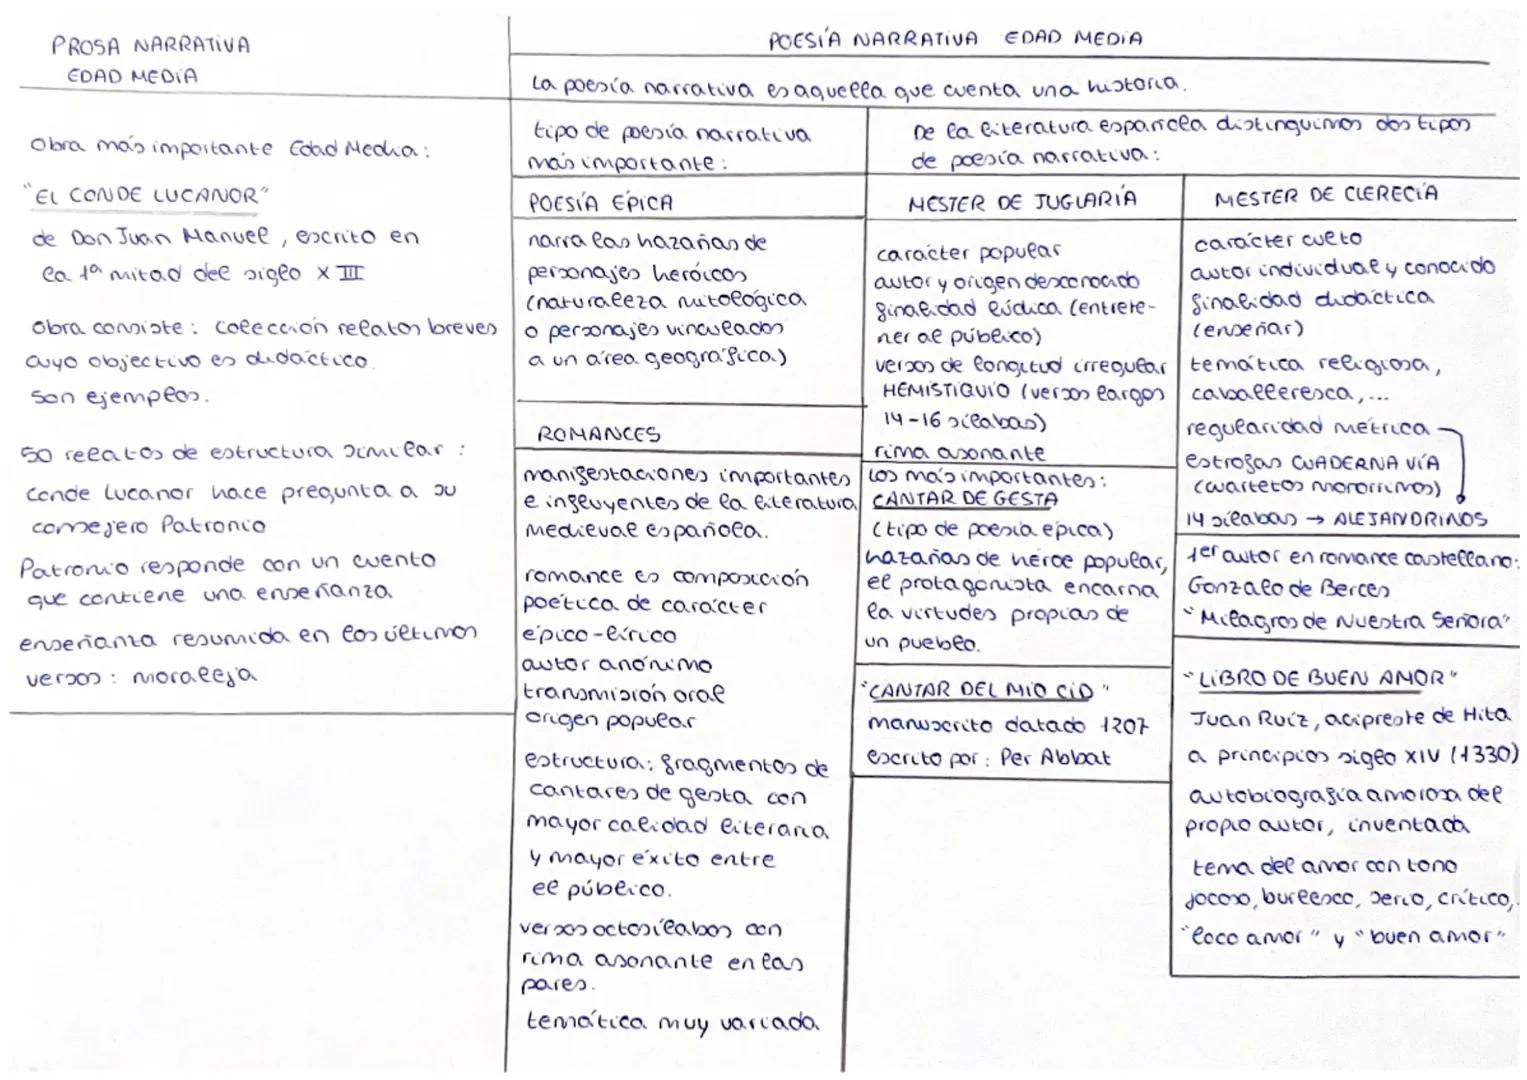 PROSA NARRATIVA
EDAD MEDIA
Obra más importante Edad Media:
"EL CONDE LUCANOR"
de Don Juan Manuel, escrito en
la 1ª mitad del siglo XIII
Obra consiste: colección relatos breves
cuyo objectivo es didáctico.
Son ejemplos.
50 relatos de estructura similar:
Conde Lucanor hace pregunta a su
consejero Patronio
Patronio responde con un cuento
que contiene una enseñanza
enseñanza resumida en los últimos
versos: moraleja
POESÍA NARRATIVA EDAD MEDIA
La poesía narrativa es aquella que cuenta una historia.
tipo de poesía narrativa
más importante:
POESÍA ÉPICA
narra las hazañas de
personajes heróicos
(naturaleza mitológica
o personajes vinculados
a un área geográfica)
ROMANCES
manifestaciones importantes
e influyentes de la literatura
medieval española.
romance es composición
poética de carácter
épico-lírico
autor anónimo
transmisión oral
origen popular
estructura: fragmentos de
cantares de gesta con
mayor calidad literaria
y mayor éxito entre
el público.
versos octosílabos con
rima asonante en las
pares.
temática muy variada
De la literatura española distinguimos dos tipos
de poesía narrativa:
MESTER DE JUGLARÍA
carácter popular
autor y origen desconocido
finalidad lúdica (entrete-
ner al público)
versos de longitud irregular
HEMISTIQUIO (versos largos
14-16 sílabas)
rima asonante
Los más importantes:
CANTAR DE GESTA
(tipo de poesía épica)
hazañas de héroe popular,
el protagonista encarna
la virtudes propias de
un pueblo.
"CANTAR DEL MIO CID"
manuscrito datado 1207
escrito por: Per Abbat
MESTER DE CLERECÍA
carácter culto
autor individual y conocido
finalidad didáctica
(enseñar)
temática religiosa,
caballeresca,...
regularidad métrica
estrofas CUADERNA VÍA
(cuartetos monorrimos)
14 sílabas → ALEJANDRINOS
1er autor en romance castellano:
Gonzalo de Berceo
"Milagros de Nuestra Señora"
"LIBRO DE BUEN AMOR"
Juan Ruíz, acipreste de Hita
a principios siglo XIV (1330)
autobiografía amorosa del
propio autor, inventada
tema del amor con tono
jocoso, burlesco, serio, crítico,
"loco amor" y "buen amor"